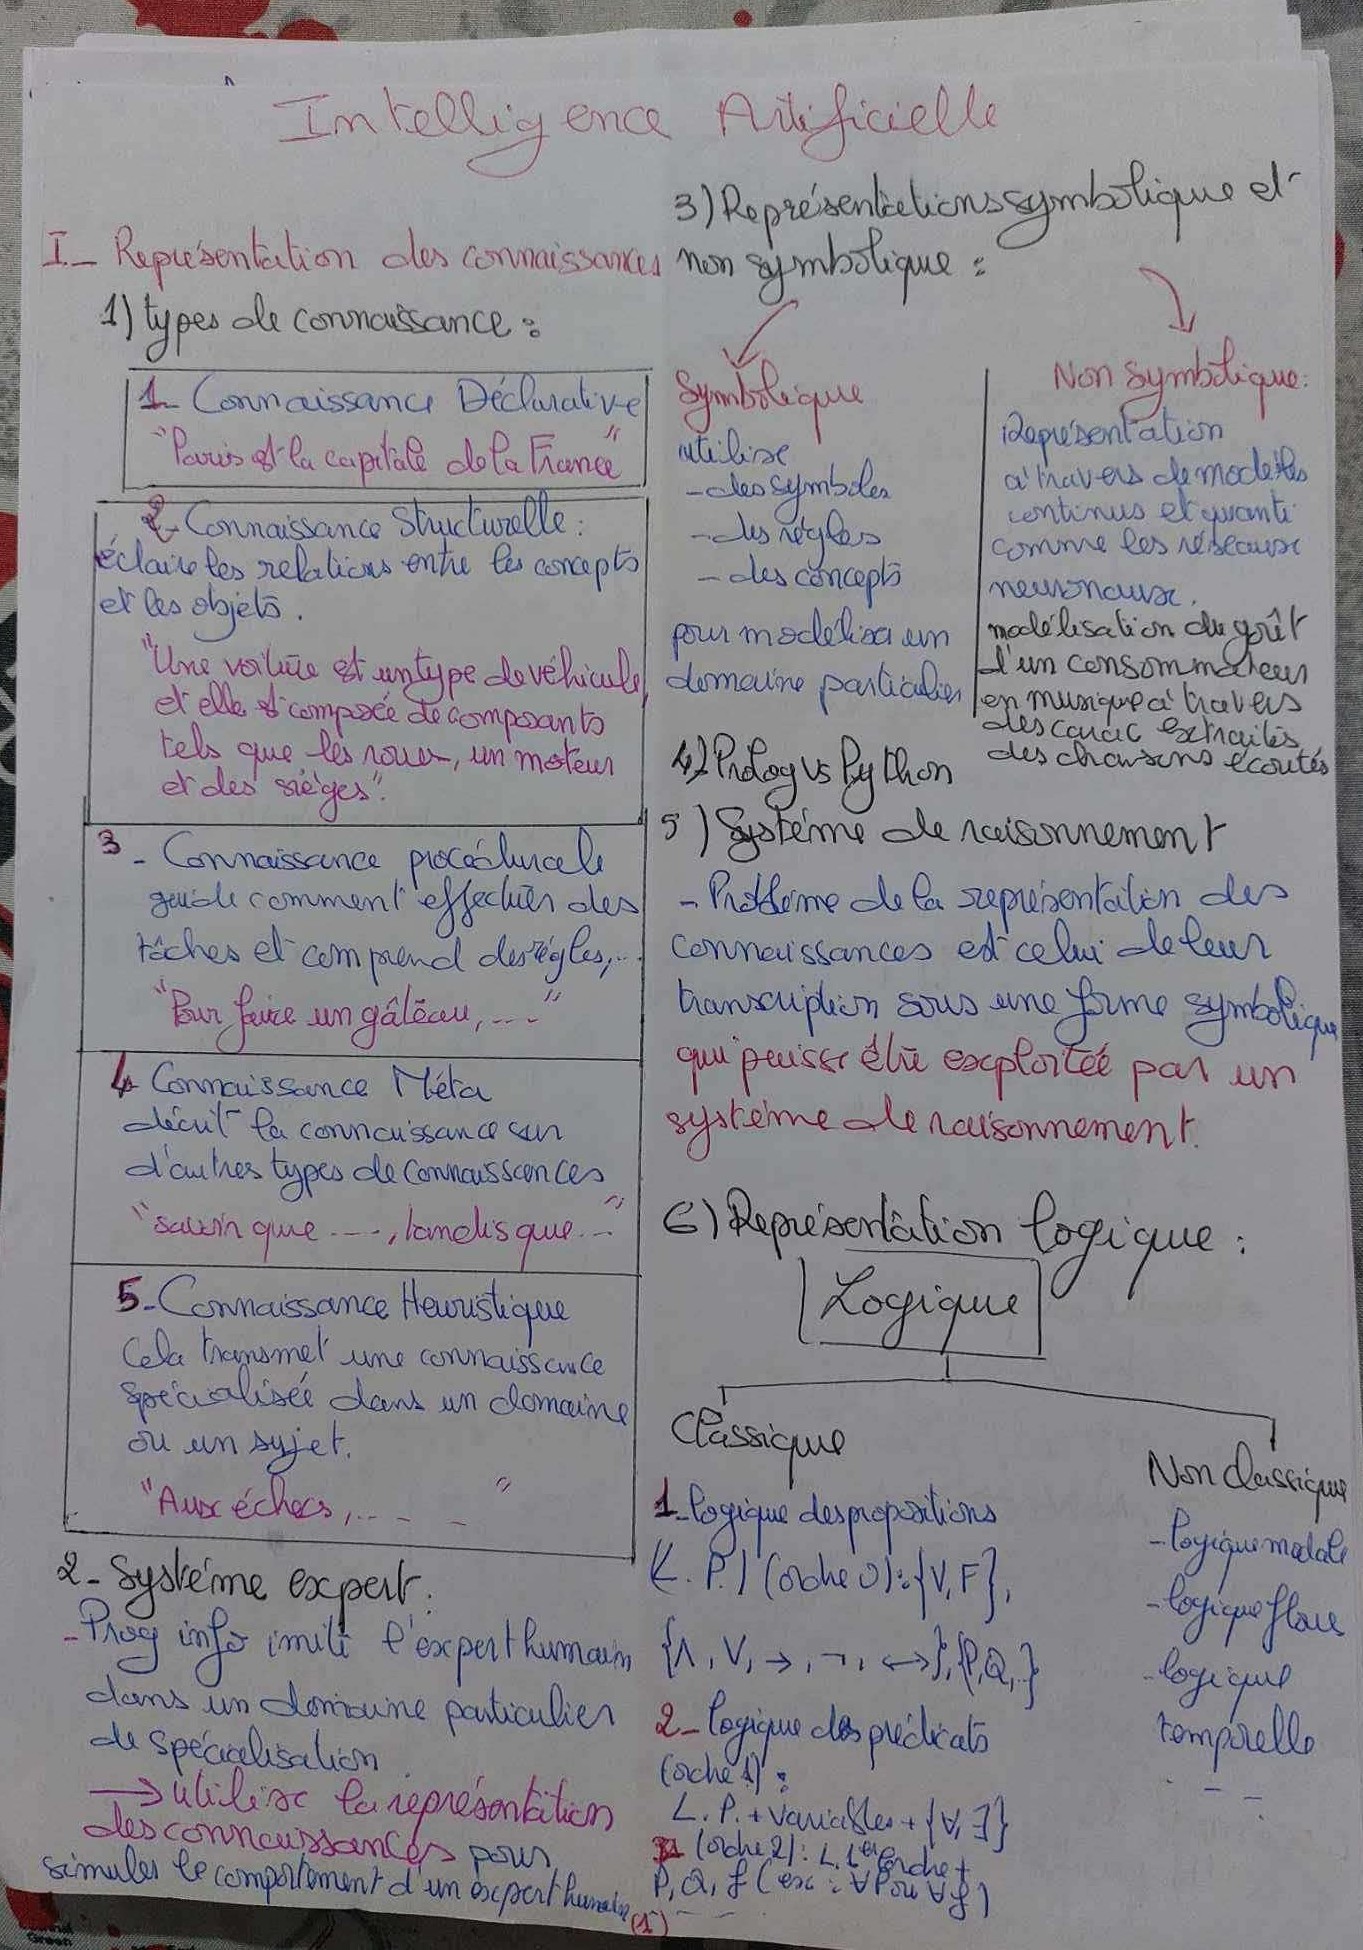 Intelligence Artificielle
I- Représentation des connaissances
1) types de connaissance :
1- Connaissance Déclarative
"Paris est la capitale de la France"
2- Connaissance Structurelle :
éclaire les relations entre les concepts
et les objets.
"Une voiture est un type de véhicule
et elle est composée de composants
tels que les roues, un moteur
et des sièges".
3- Connaissance procédurale
guide comment effectuer des
tâches et comprend des règles,...
"Pour faire un gâteau, ---"
4 Connaissance Méta
décrit la connaissance sur
d'autres types de connaissances
"savoir que ----, tandis que --"
5- Connaissance Heuristique
Cela transmet une connaissance
spécialisée dans un domaine
ou un sujet.
"Aux échecs, -- - -"
2- Système expert.
- Prog info imite l'expert humain
dans un domaine particulier
de spécialisation.
→ utilise la représentation
des connaissances pour
simuler le comportement d'un expert humain
3) Représentations symbolique et
non symbolique :
Symbolique
utilise
- des symboles
- des règles
- des concepts
pour modéliser un
domaine particulier
Non symbolique :
Représentation
à travers de modèles
continus et quanti
comme les réseaux
neuronaux.
modélisation du goût
d'un consommateur
en musique à travers
des carac extraites
des chansons écoutés
4) Prolog vs Python
5) Système de raisonnement
- Problème de la représentation des
connaissances est celui de leur
transcription sous une forme symbolique
qui puisse être exploitée par un
système de raisonnement.
6) Représentation logique :
Logique
Classique
1- logique des propositions
(L.P.) (ordre 0) : {V, F},
{∧, ∨, →, ¬, ↔}, {P, Q, .}
2- logique des prédicats
(ordre 1) :
L.P. + variables + {∀, ∃}
(ordre 2) : L. 1er ordre +
P, Q, f (ex : ∀P ou ∀f)
Non classique
- logique modale
- logique floue
- logique
temporelle
(1)